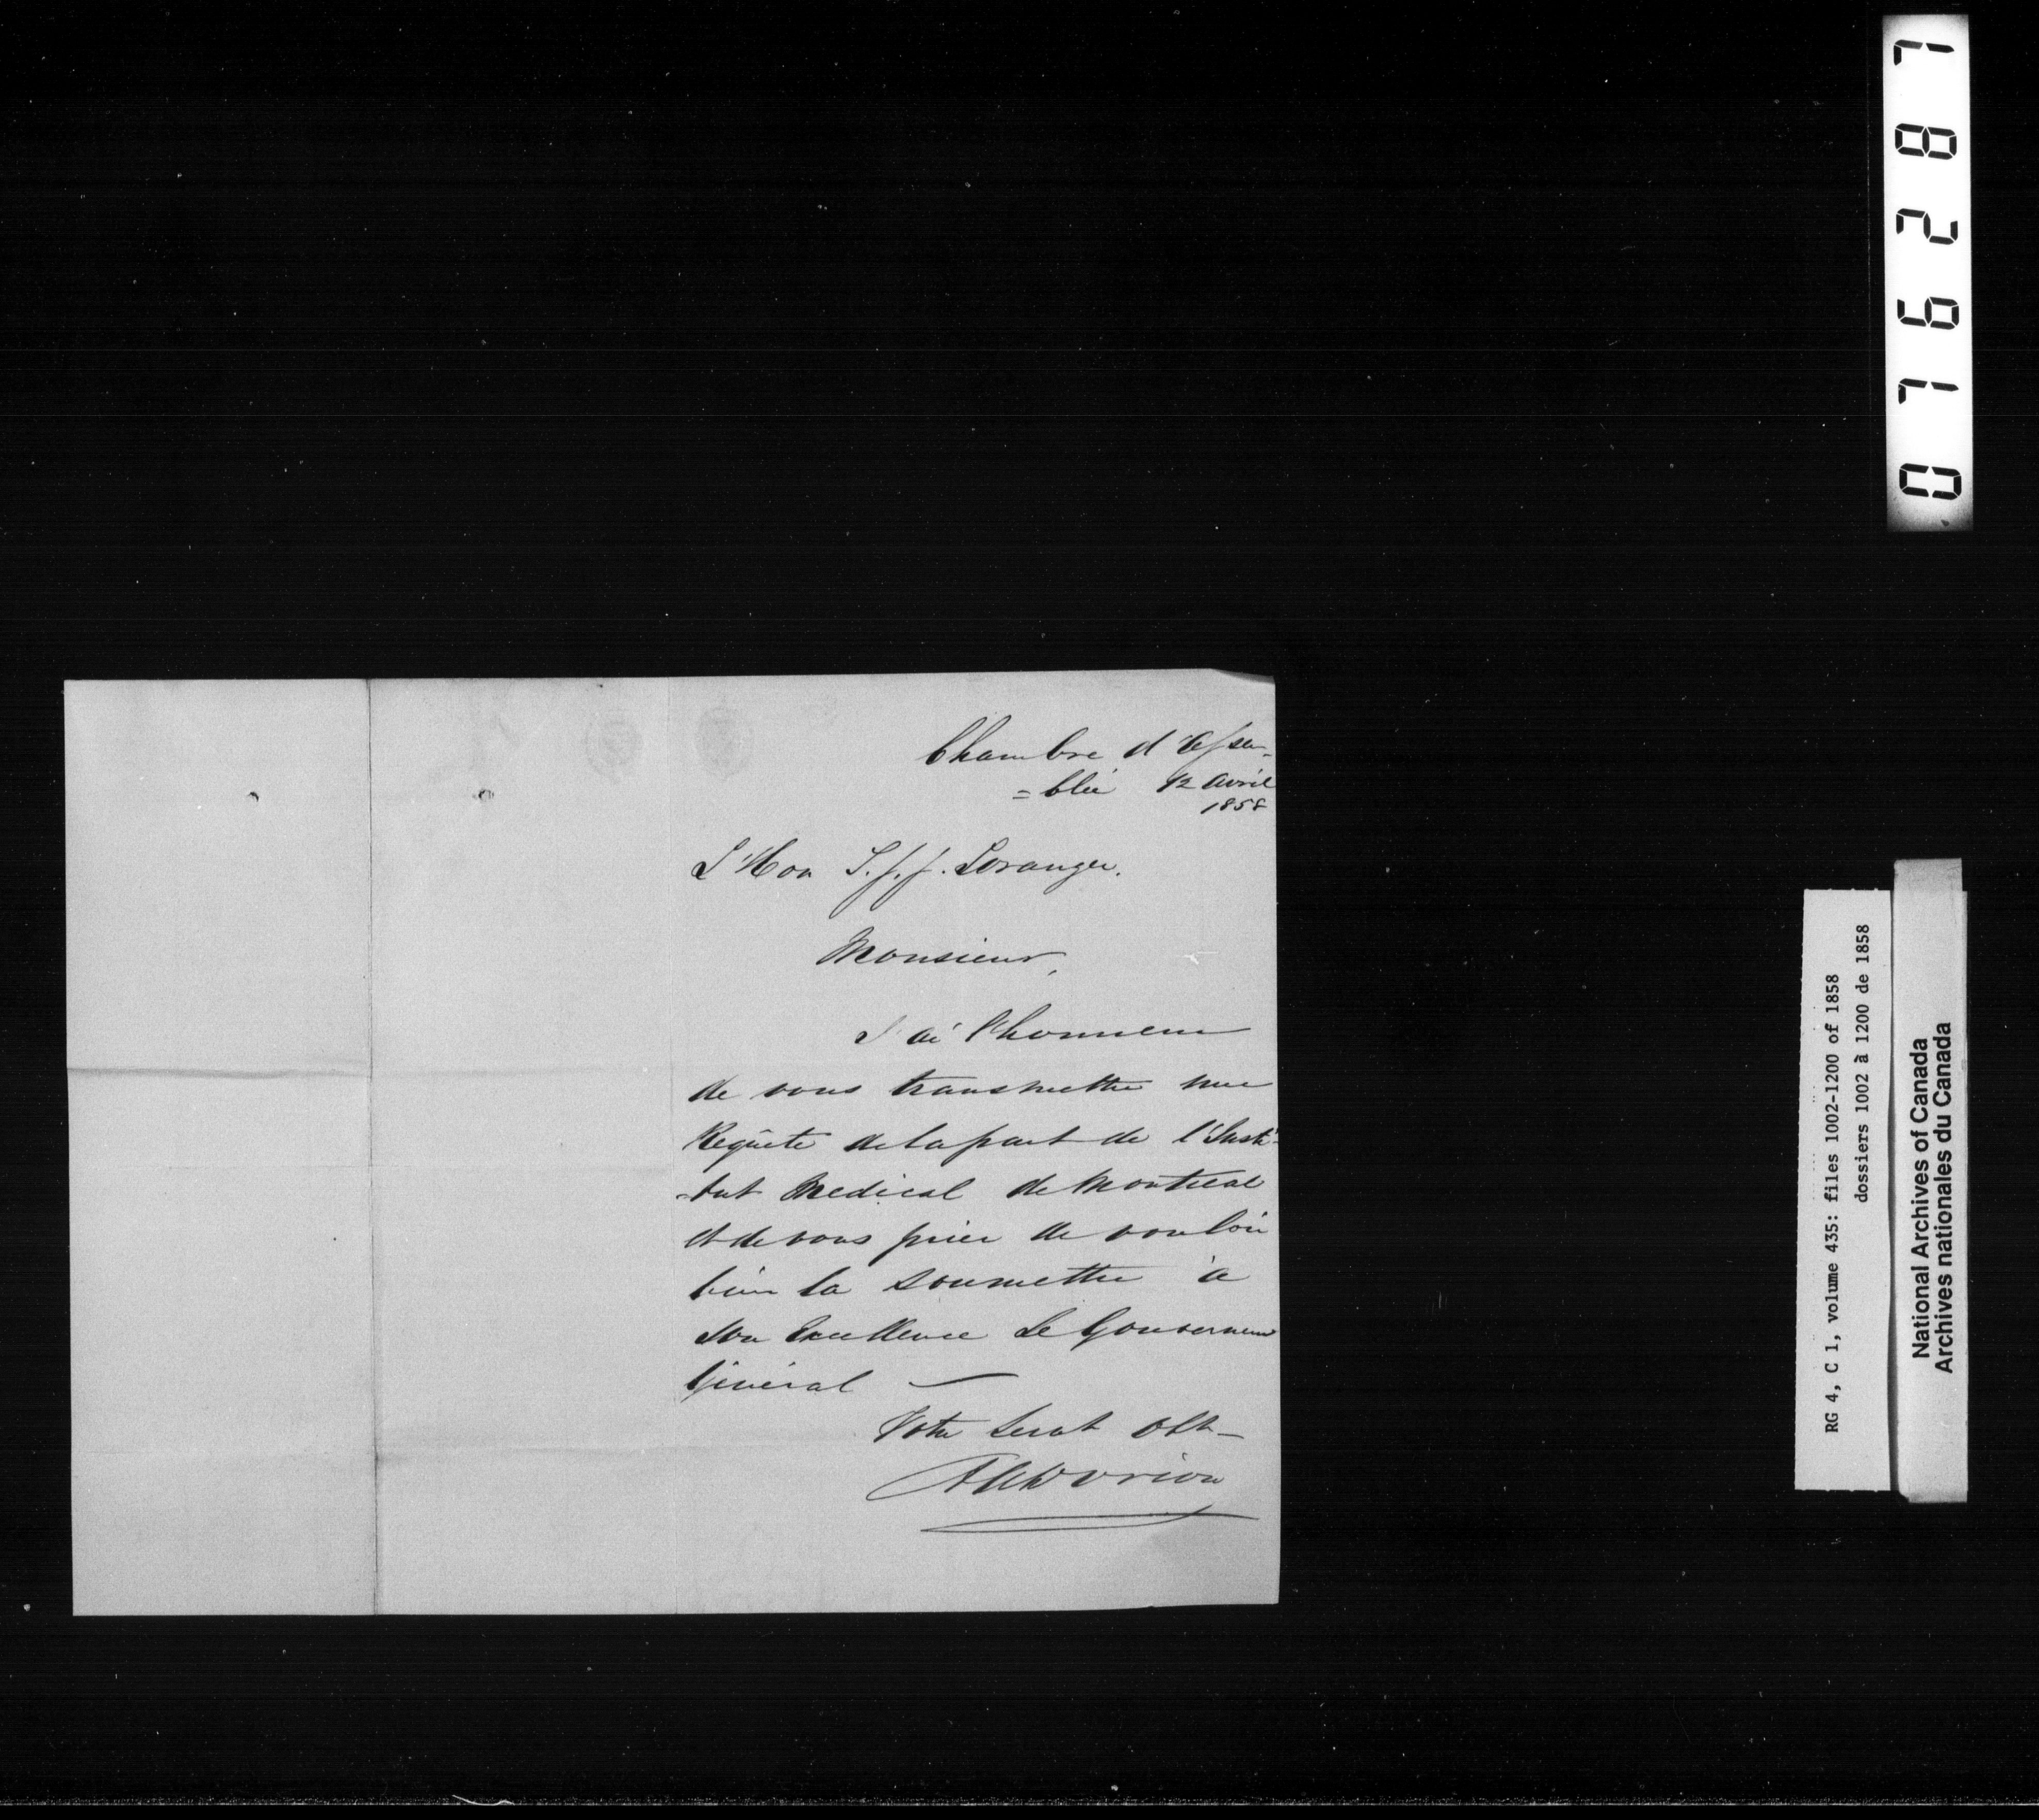 Chambre d'Assem-
=blée 12 avril
1858
L'Hon T. J. J. Loranger.
Monsieur,
J'ai l'honneur
de vous transmettre une
Requête de la part de l'Insti-
-tut Medical de Montreal
et de vous prier de vouloir
bien la soumettre à
Son Excellence Le Gouverneur
Général —
Votre Servt Obt—
AADorion
076287
RG 4, C 1, volume 435: files 1002-1200 of 1858
dossiers 1002 à 1200 de 1858
National Archives of Canada
Archives nationales du Canada